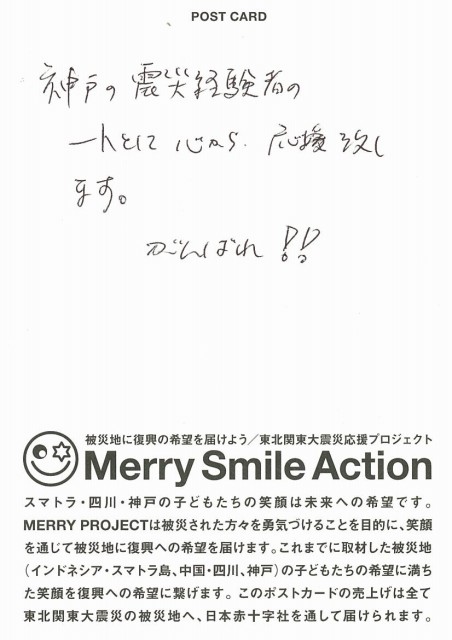 POST CARD
神戸の震災経験者の
一人として心から 応援致し
ます。
がんばれ!!
被災地に復興の希望を届けよう/東北関東大震災応援プロジェクト
Merry Smile Action
スマトラ・四川・神戸の子どもたちの笑顔は未来への希望です。
MERRY PROJECTは被災された方々を勇気づけることを目的に、笑顔
を通じて被災地に復興への希望を届けます。これまでに取材した被災地
(インドネシア・スマトラ島、中国・四川、神戸)の子どもたちの希望に満ち
た笑顔を復興への希望に繋げます。このポストカードの売上げは全て
東北関東大震災の被災地へ、日本赤十字社を通して届けられます。